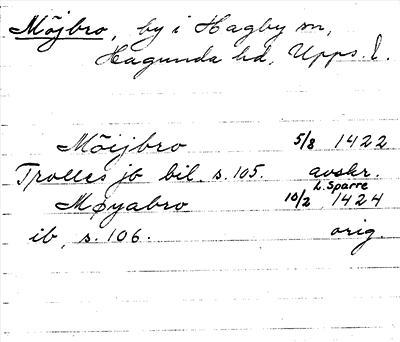 Möjbro, by i Hagby sn,
Hagunda hd, Upps. l.
Möijbro 5/8 1422
Trolles jb bil. s. 105. avskr.
L. Sparre
Møyabro 10/2 1424
ib, s. 106. orig.